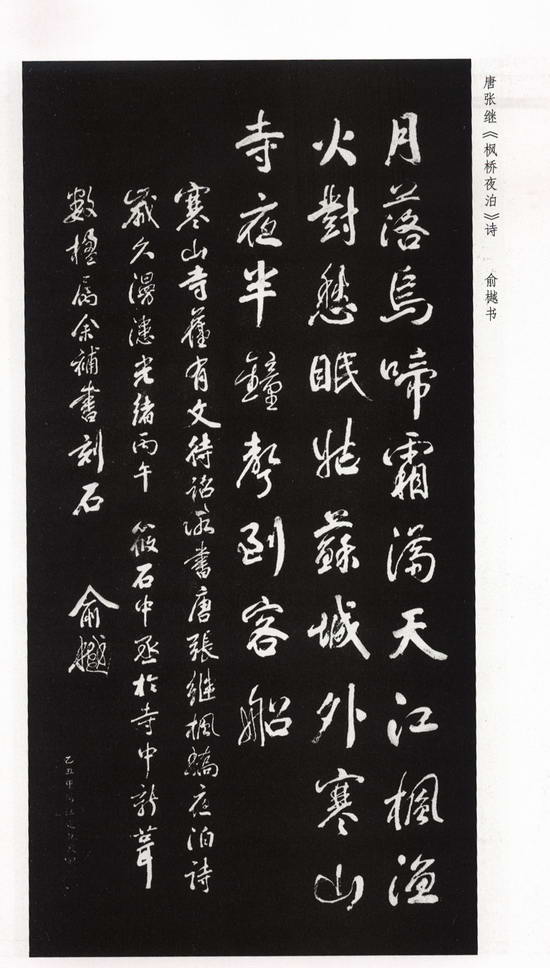 唐张继《枫桥夜泊》诗 俞樾书
月落烏啼霜滿天江楓漁
火對愁眠姑蘇城外寒山
寺夜半鐘聲到客船
寒山寺舊有文待詔所書唐張繼楓橋夜泊詩
歲久漫漶光緒丙午 筱石中丞於寺中新葺
數楹屬余補書刻石 俞樾
乙丑年